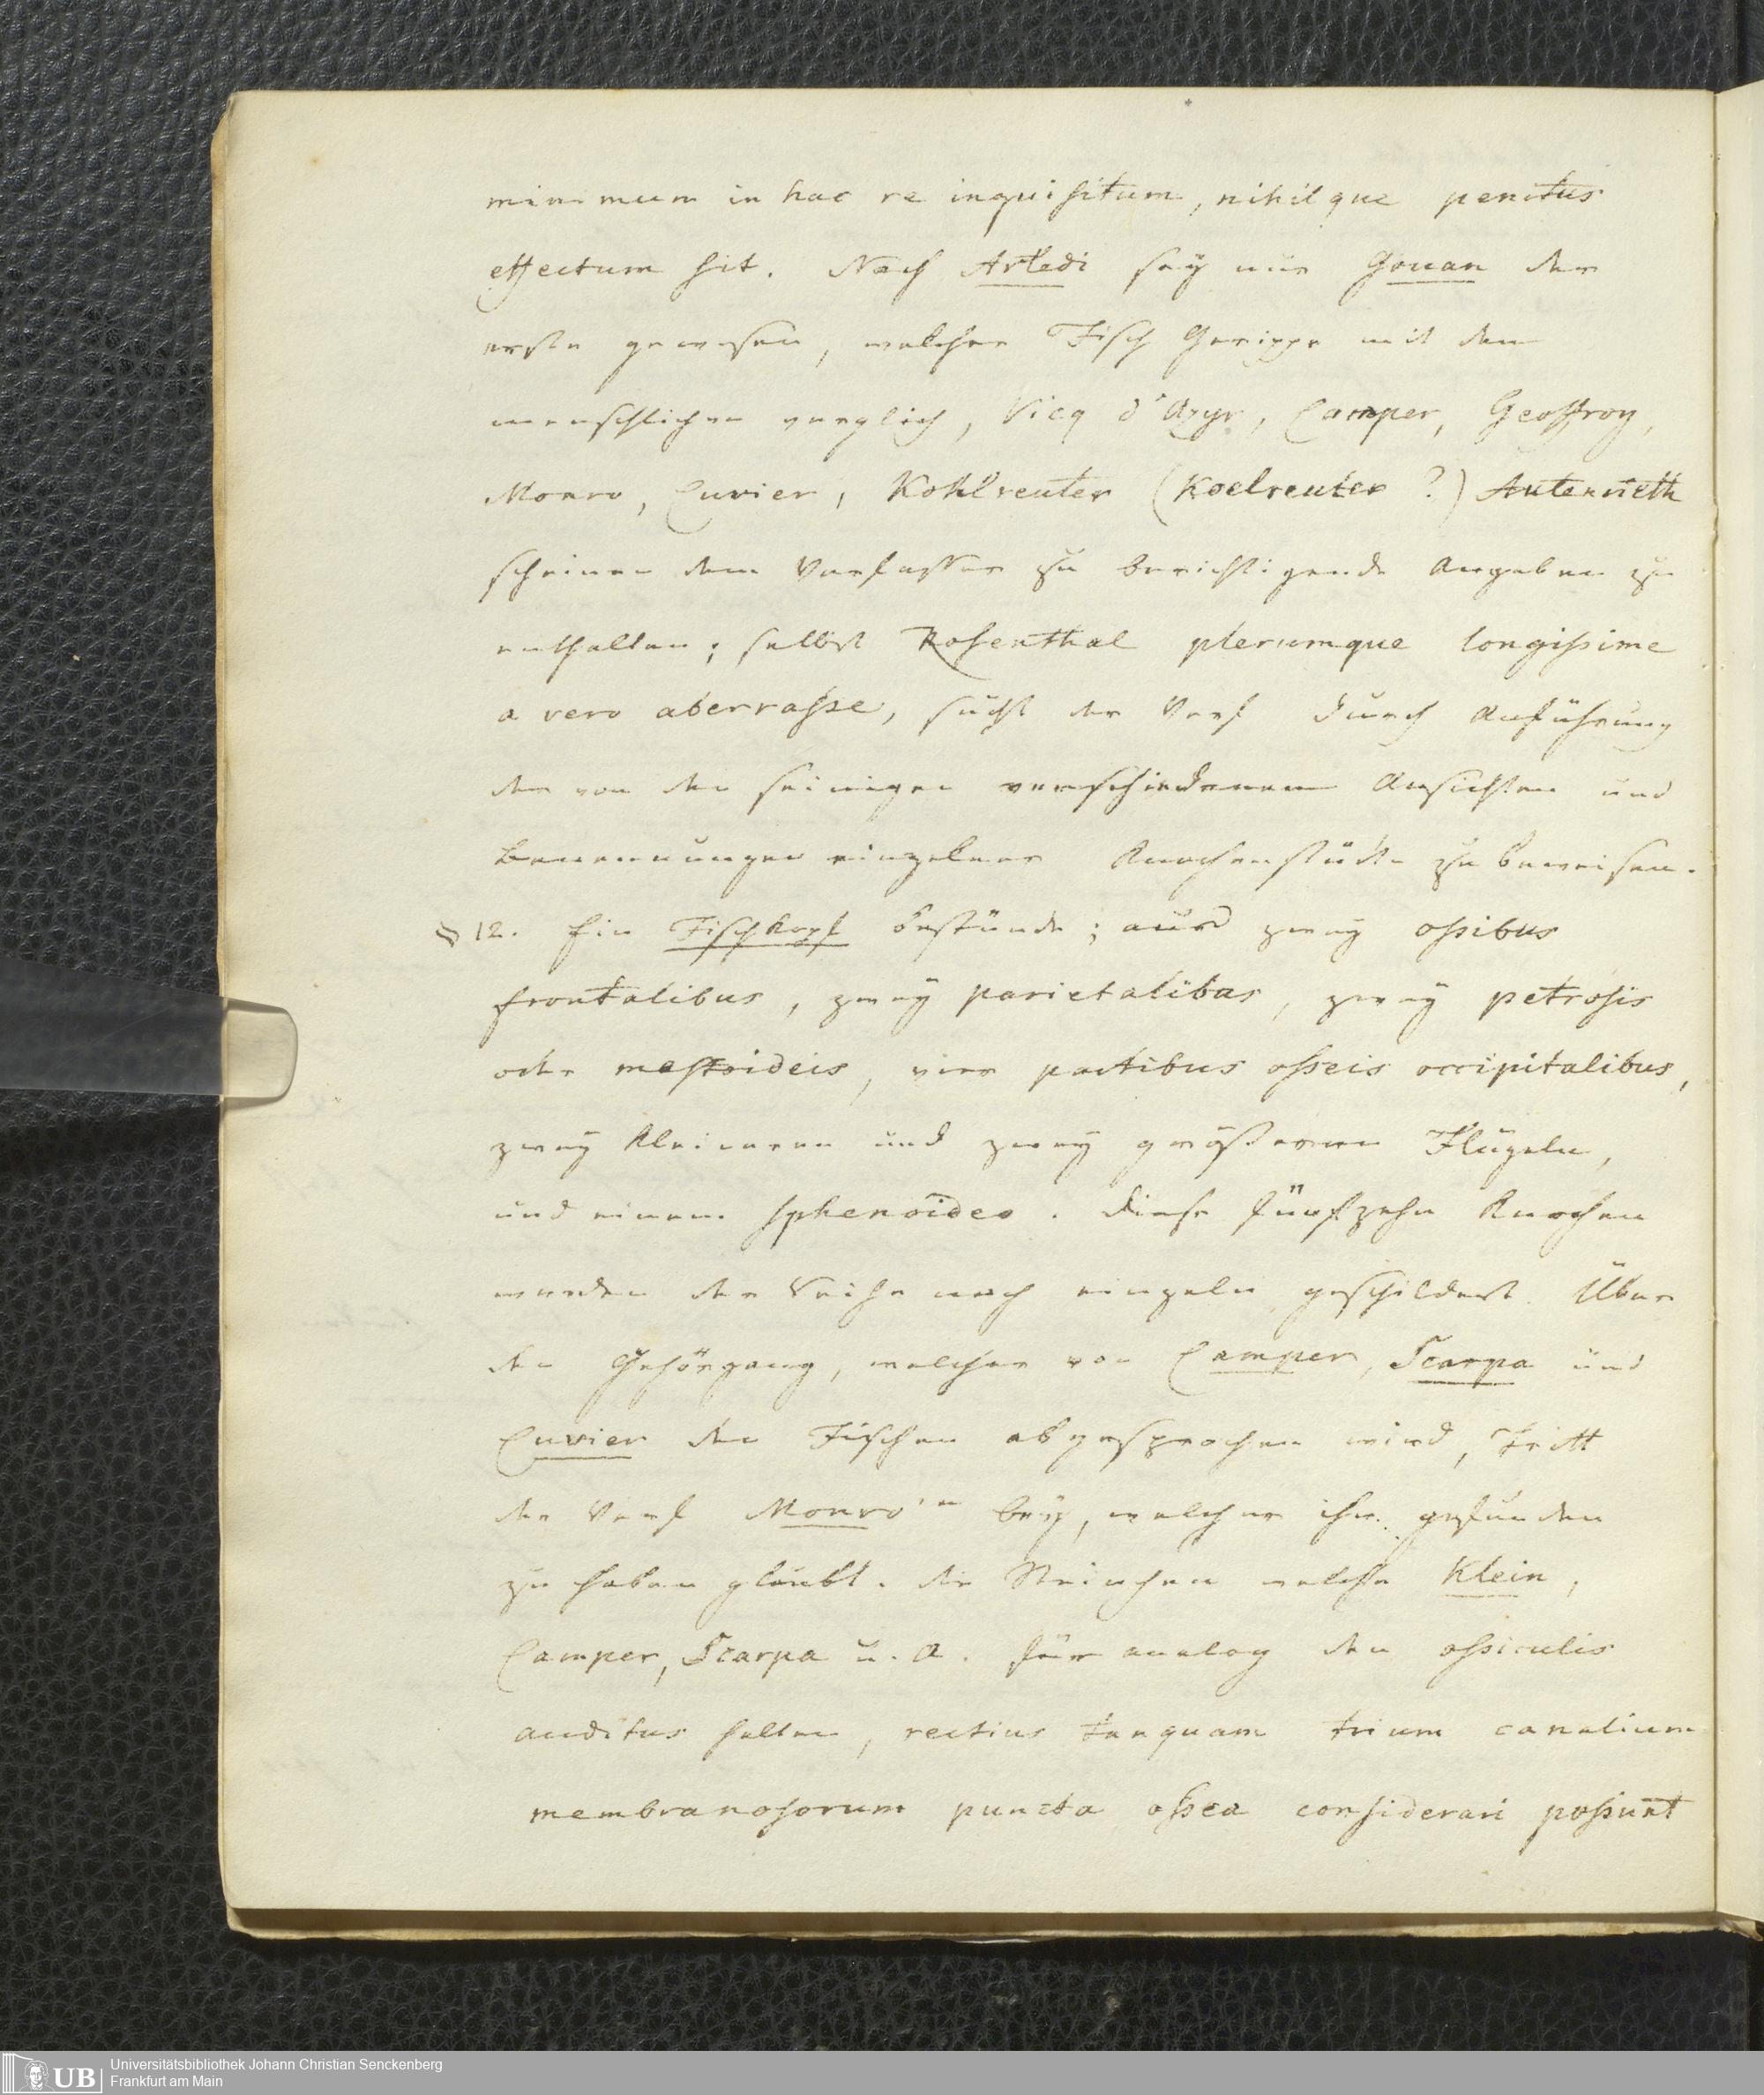 minimum in hac re inquisitum, nihilque penitus
effectum sit. Nach Artedi sey nur Gouan der
erste gewesen, welcher Fisch Gerippe mit dem
menschlichen verglich, Vicq d'Azyr, Camper, Geoffroy,
Monro, Cuvier, Kohlreuter (Koelreuter ?) Autenrieth
scheinen dem Verfasser zu berichtigende Angaben zu
enthalten; selbst Rosenthal plerumque longissime
a vero aberrasse, sucht der Verf durch Anführung
der von den seinigen verschiedenen Ansichten und
Benennungen einzelner Knochenstücke zu beweisen.
§ 12. Ein Fischkopf bestünde; aus zwey ossibus
frontalibus, zwey parietalibus, zwey petrosis
oder mastoideis, vier partibus osseis occipitalibus,
zwey kleineren und zwey größeren Flügeln,
und einem sphenoideo. Diese fünfzehn Knochen
werden der Reihe nach einzeln geschildert. Über
den Gehörgang, welcher von Camper, Scarpa und
Cuvier den Fischen abgesprochen wird, tritt
der Verf Monro'n bey, welcher ihn gefunden
zu haben glaubt. Die Steinchen welche Klein,
Camper, Scarpa u. A. für analog den ossiculis
auditus halten, rectius tanquam trium canalium
membranosorum puncta ossea considerari possunt
UB Universitätsbibliothek Johann Christian Senckenberg
Frankfurt am Main